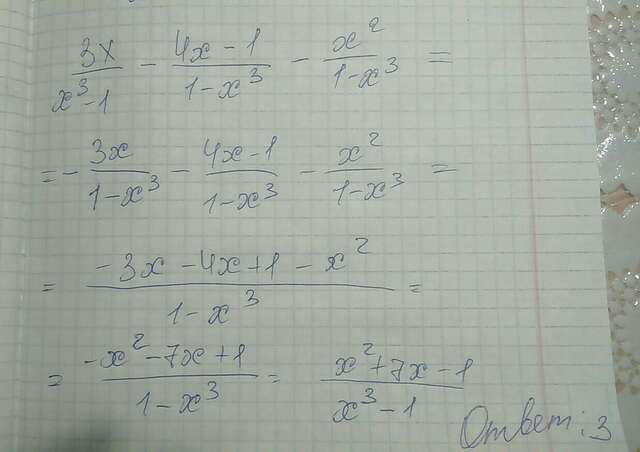 3x/(x³-1) - (4x-1)/(1-x³) - x²/(1-x³) =
= - 3x/(1-x³) - (4x-1)/(1-x³) - x²/(1-x³) =
= (-3x-4x+1-x²)/(1-x³) =
= (-x²-7x+1)/(1-x³) = (x²+7x-1)/(x³-1)
Ответ: 3